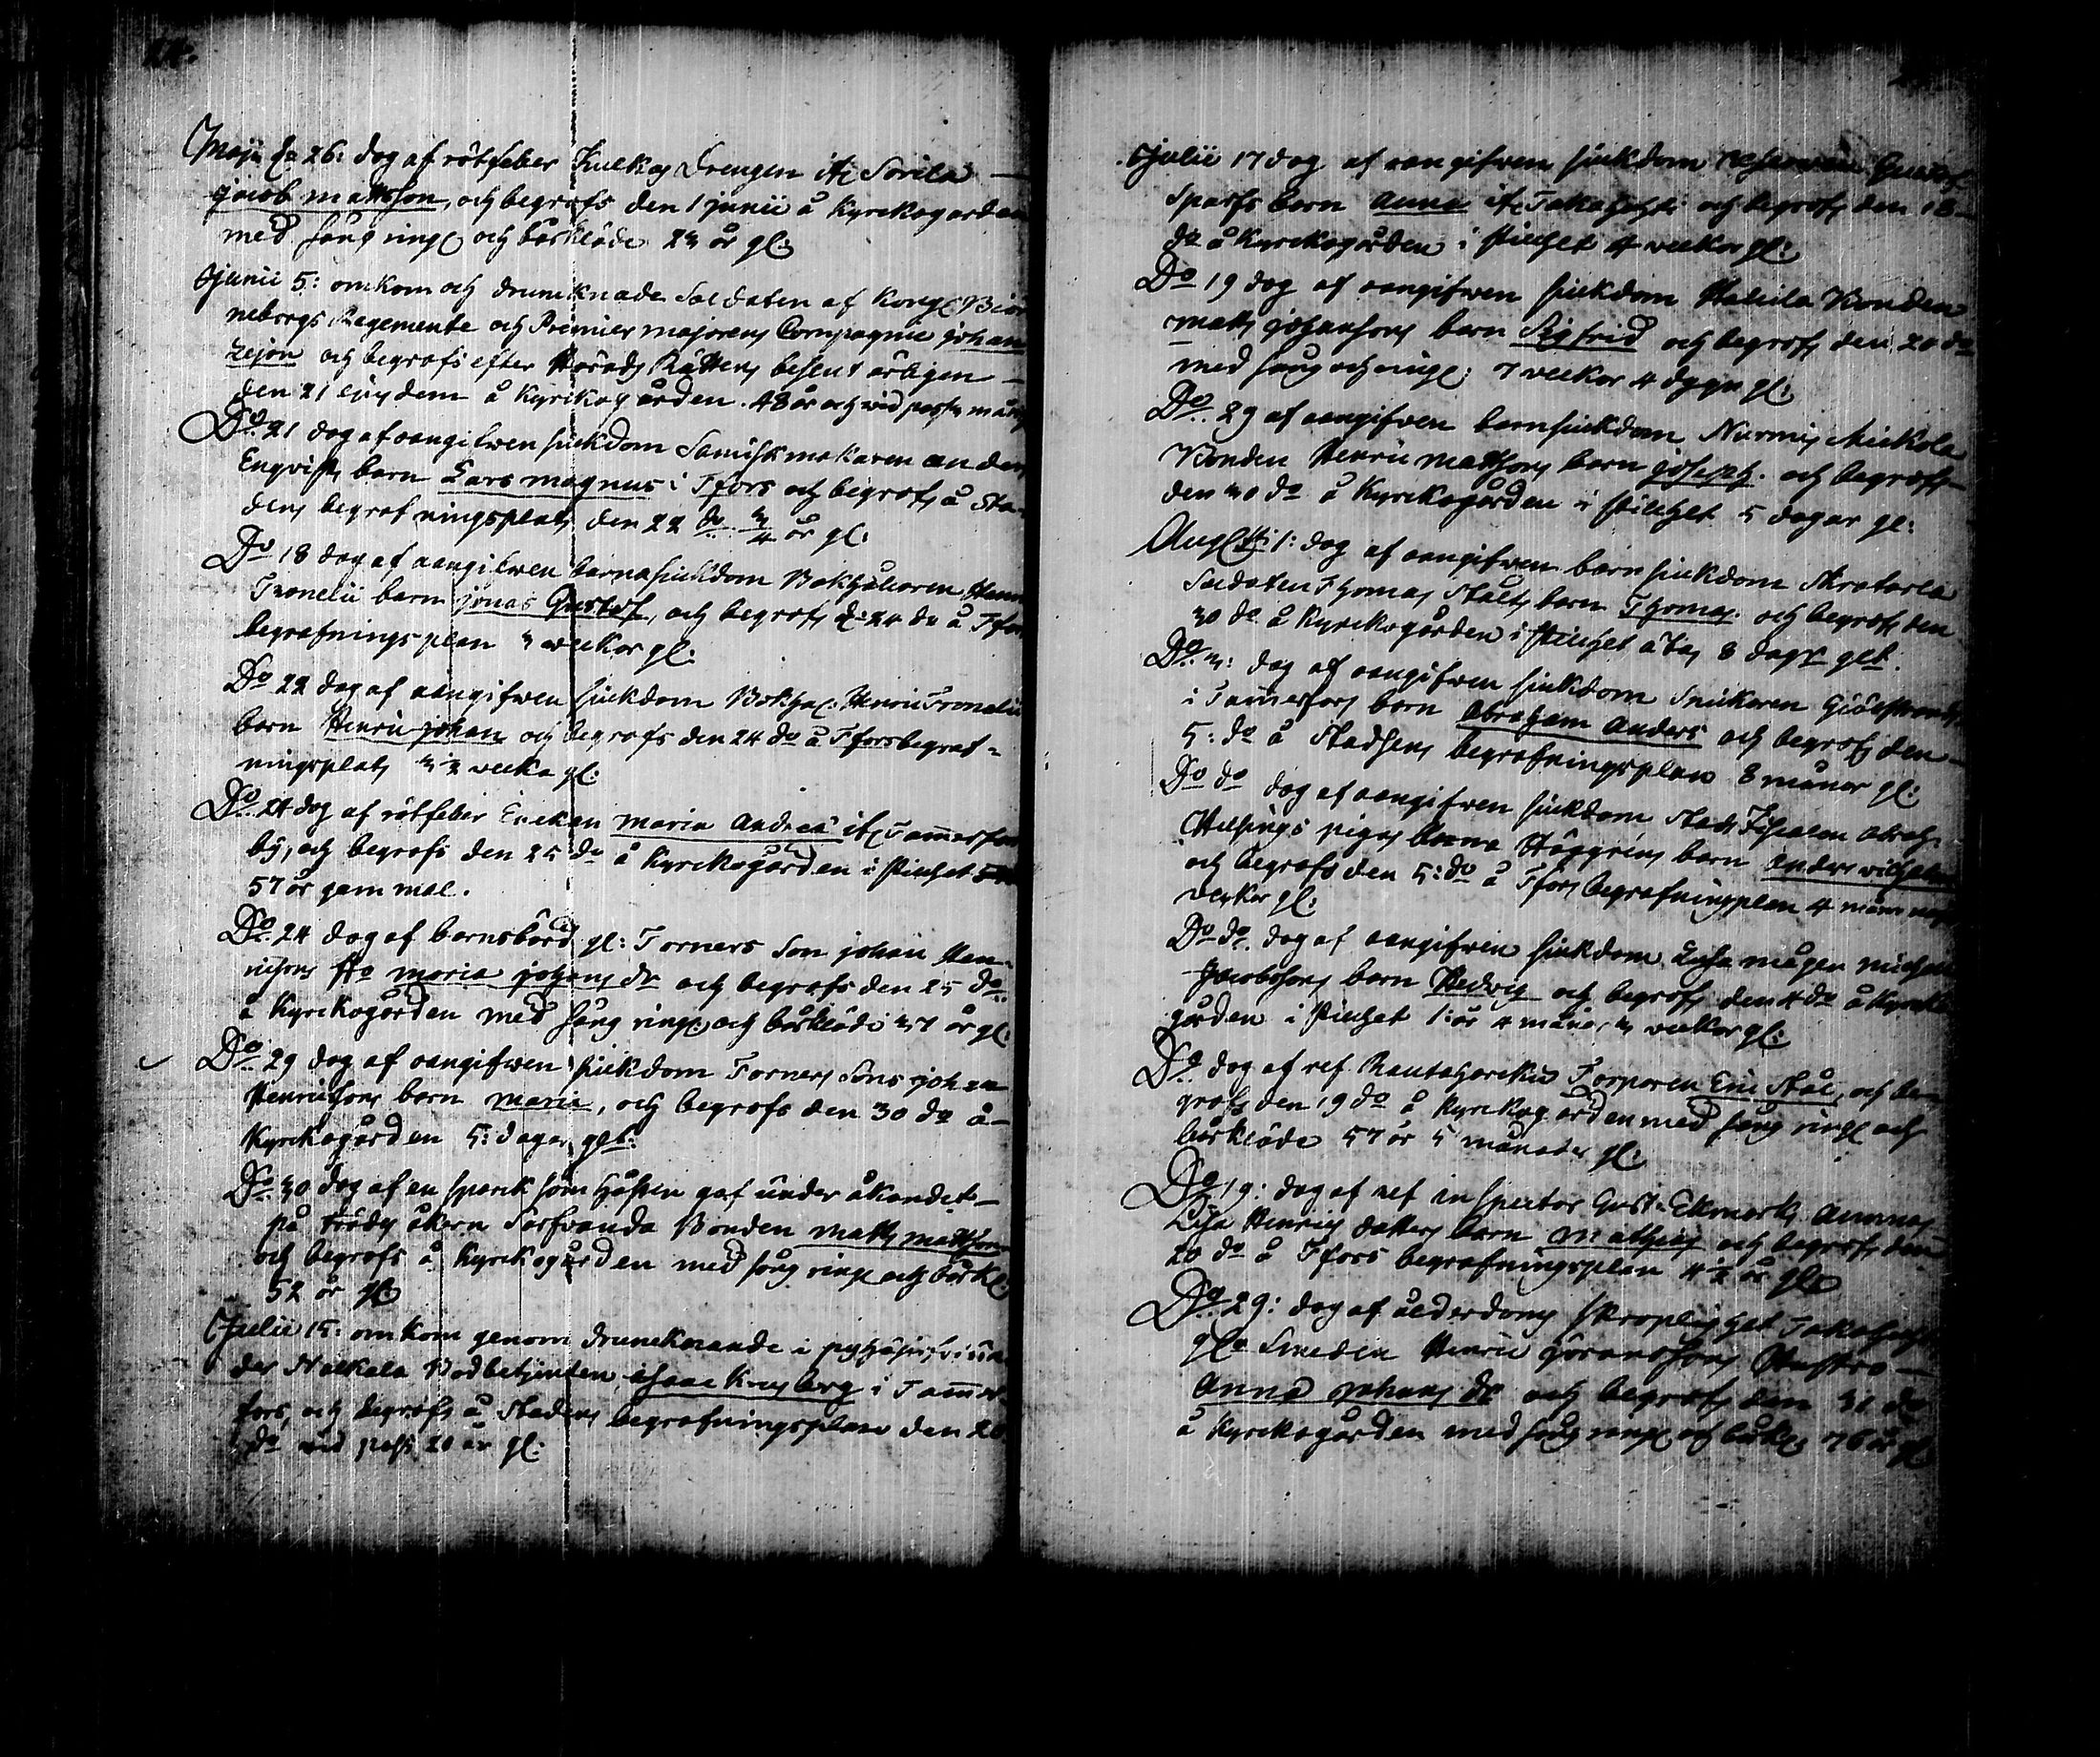 Maji d: 26: dog af rötfeber Kulkas Drengen ifr Sorila
Jacob mattsson, och begrofs den 1 junii å Kyrckogården
med sång ring: och bårkläde 23 år gl:
Junii 5: omkom och drunknade Soldaten af Kongl Biör
neborgs Regemente och Premier majorens Compagnie johan
Lejon och begrofs efter Härads Rättens beslut ärligen
den 21 ejusdem å Kyrkogården. 48 år och vid pass
Do 21 dog af oangifwen siukdom Sämiskmakaren anders
Enqvists barn Lars magnus i Tfors och begrofs å Sta-
dens begrafningsplats den 22 do 3/4 år gl:
Do 18 dog af oangifwen barnasiukdom Bokhållaren Henr
Tronelii barn jonas Gustaf, och begrofs d: 24 do å Tfors
begrafningsplan 3 weekor gl:
Do 22 dog af oangifwen siukdom Bokhal: Henric Tronelii
barn Henric johan och begrofs den 24 do å Tfors begraf-
ningsplats 3 1/2 wecka gl:
Do 24 dog af rötfeber Enckan maria Andersd ifr Tammerfors
by, och begrofs den 25 do å Kyrckogården i stillhet
57 år gammal.
Do 24 dog af barnsbörd gl: Torners Son johan Hen-
ricsons Ho maria johans dr och begrofs den 25 do
å Kyrckogården med sång ring: och bårkläde 37 år gl:
Do 29 dog af oangifwen siukdom Torners Sons johan
Henricssons barn maria, och begrofs den 30 do å
Kyrckogården 5: dagar glt:
Do 30 dog af en spark som hästen gaf under åkandet
på trädes åkern Sorfvanda Bonden matts mattsson
och begrofs å Kyrckogården med sång ring och bårkl:
52 år gl:
Julii 15: omkom genom drunknande i
der Nalkala Bodbetjenten isaac i Tammer-
fors, och begrofs å Stadens begrafningsplan den 20
do vid pass 20 år gl:
Julii 17 dog af oangifwen siukdom Gustaf
Sparfs barn Anna ifr Takahuhti och begrofs den 18
do å Kyrckogården i stillhet 4 weckor gl:
Do 19 dog af oangifwen siukdom Hatila Bonden
matts johanssons barn Sigfrid och begrofs den 20 do
med sång och ring: 7 weckor 4 dygn gl:
Do 29 af oangifwen barnsiukdom Nurmis Mickola
Bonden Henric mattsons barn joseph. och begrofs
den 30 do å Kyrckogården i stillhet 5 dagar gl:
Augusti 1: dog af oangifwen barnsiukdom
Soldaten Thomas Ståls barn Thomas och begrofs den
30 do å Kyrckogården i stillhet 8 dagr glt.
Do 3: dog af oangifwen siukdom Snickaren Giöestrands
i Tammerfors barn Abraham Anders och begrofs den
5: do å Stadsens begrafningsplan 8 månar gl:
Do do dog af oangifwen siukdom Stads Fiscalen Abrah:
Helsings pigas Anna barn anders vilhelm
och begrofs den 5: do å Tfors begrafningsplan 4 mån
veckor gl:
Do do dog af oangifwen siukdom mågen michels
Jacobssons barn Hedvig och begrofs den 4 do å Kyrcko
gården i stillhet 1: år 4 månar 3 veckor gl:
Do dog af ref Rautaharkko Torparen Eric Stål, och be-
grofs den 19 do å Kyrckogården med sång ring och
bårkläde 57 år 5 månader gl:
Do 19: dog af ref inspector Gust: Ekmarks Ammas
Lisa Henrics dotters barn mathias och begrofs den
20 do å Tfors begrafningsplan 4 1/2 år gl:
Do 29: dog af ålderdoms skröplighet Takahuhti
gla Smeden Henric Göranssons Hustro
Anna johans dr och begrofs den 31 do
å Kyrckogården med sång ring och bårkl: 76 år gl: